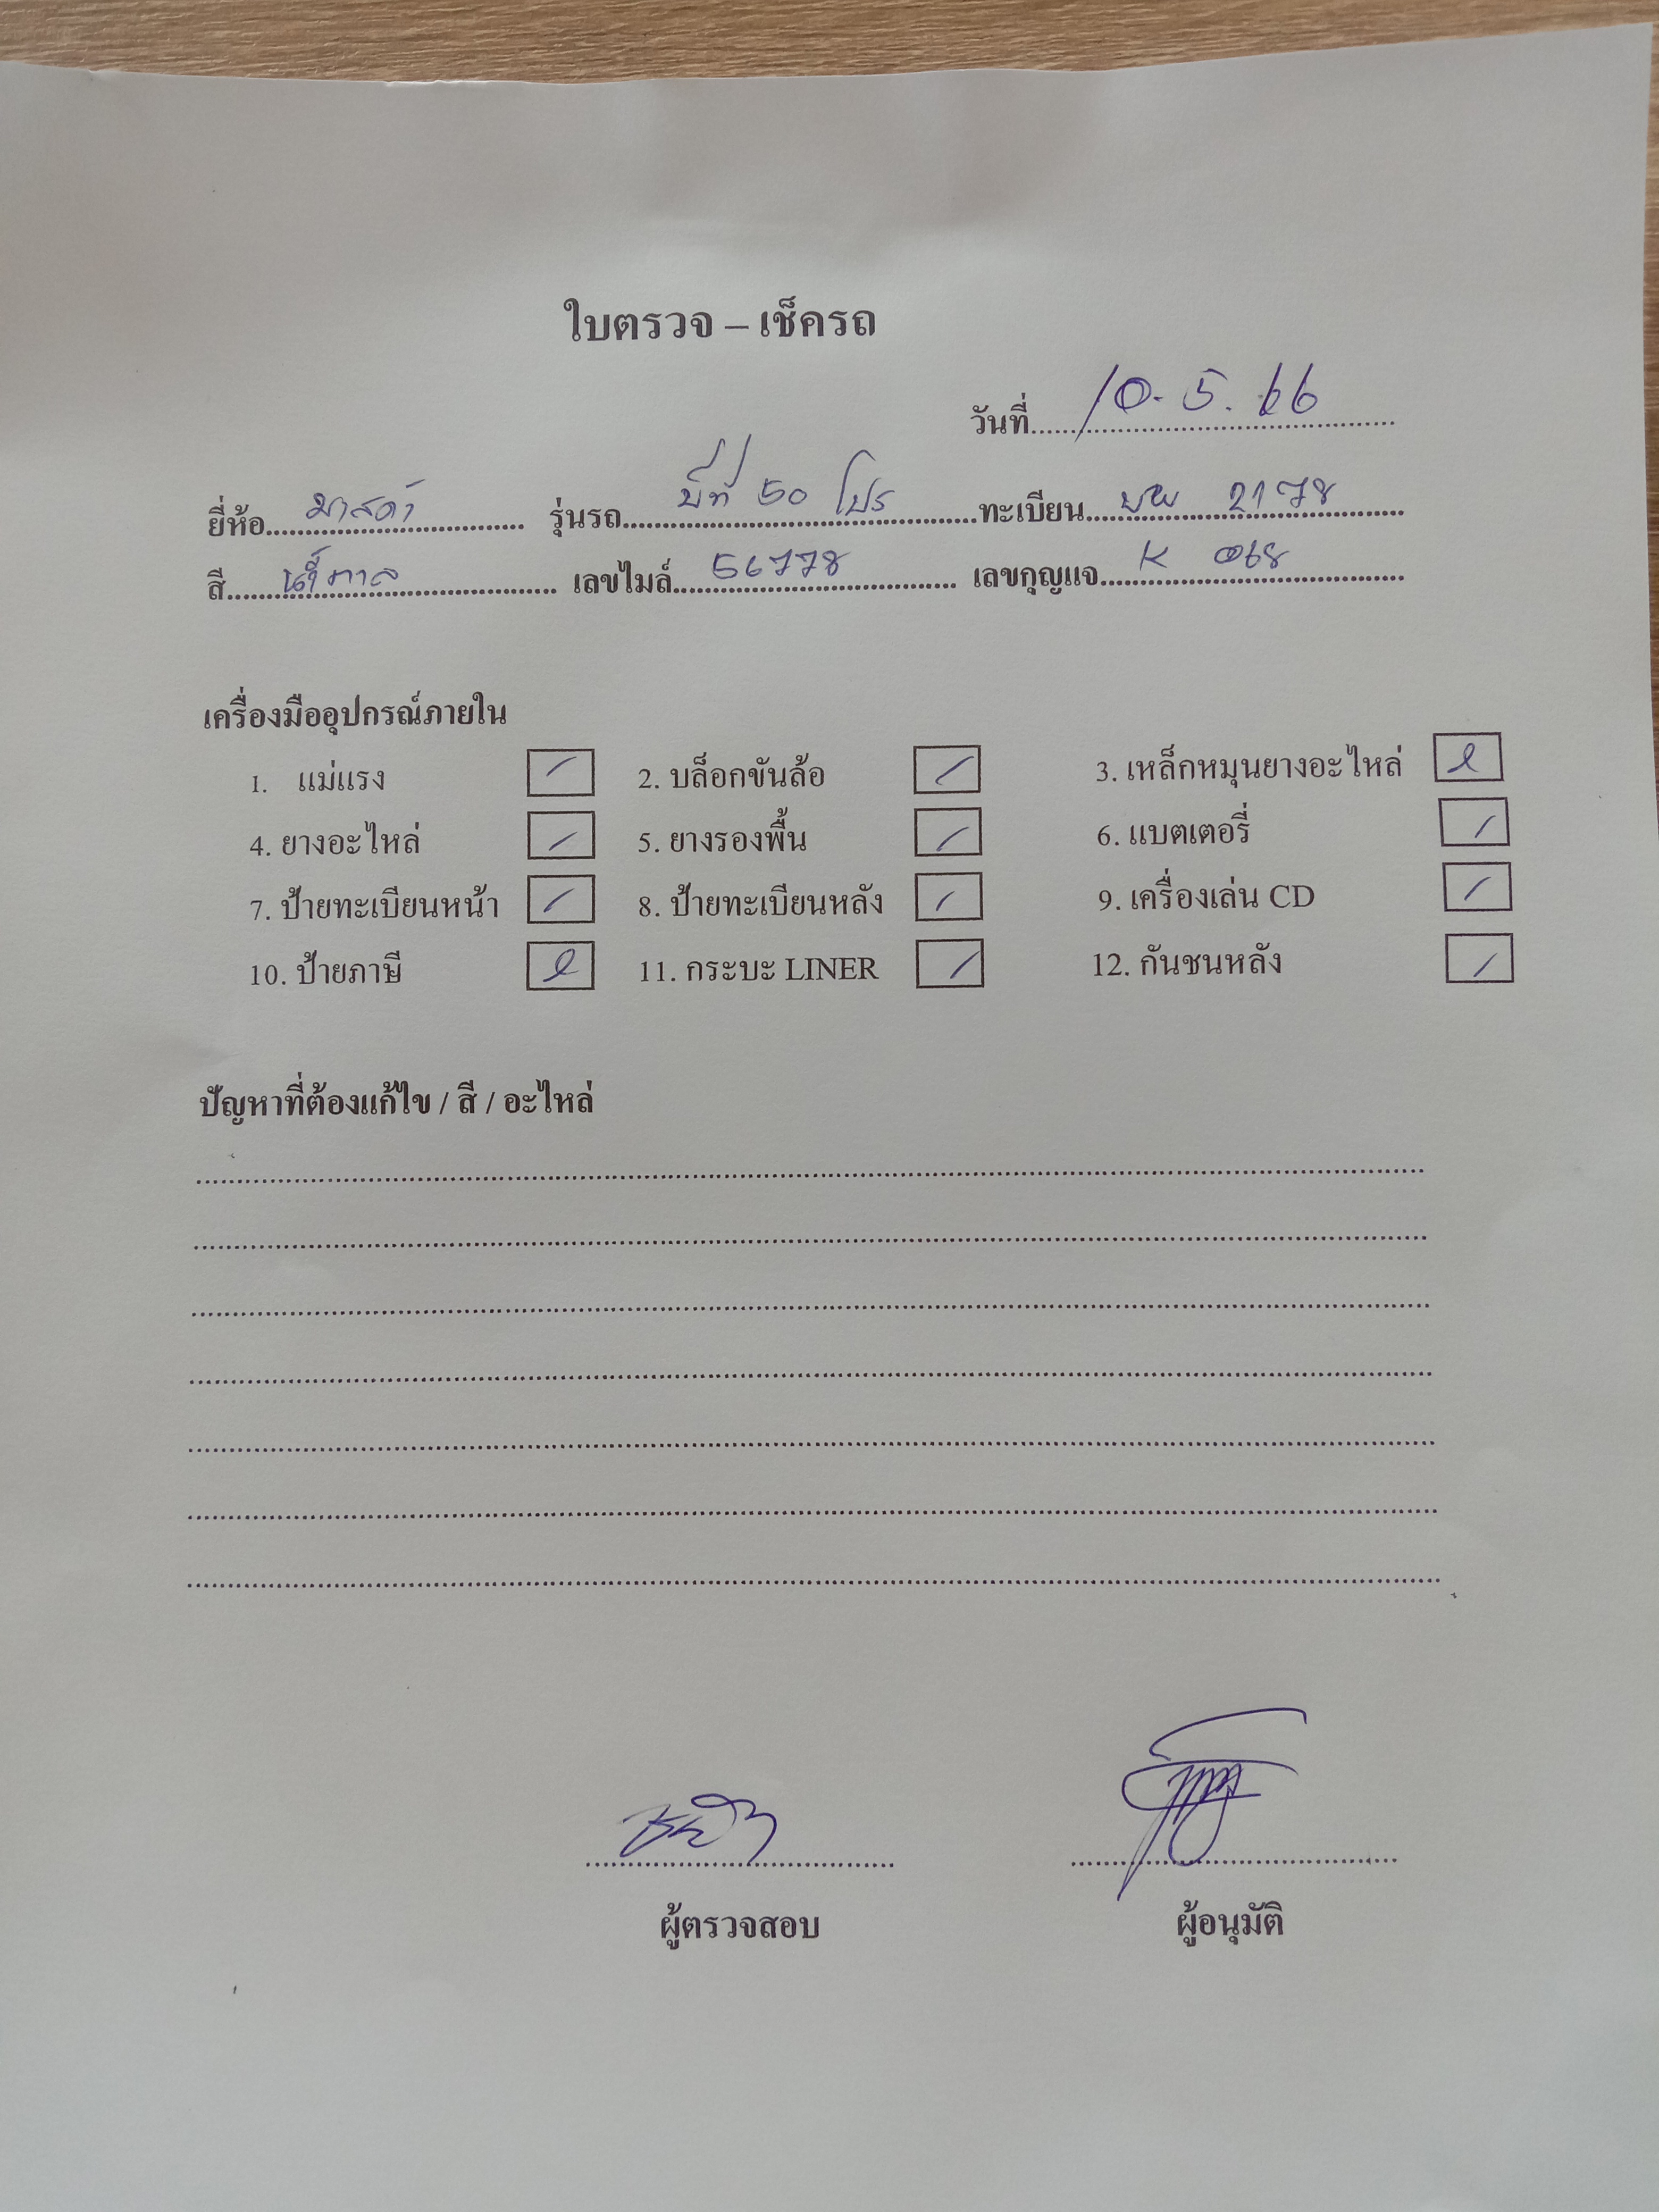 ใบตรวจ – เช็ครถ
วันที่ 10. 5. 66
ยี่ห้อ มาสด้า รุ่นรถ บีที 50 โปร ทะเบียน 2178
สี น้ำตาล เลขไมล์ 56778 เลขกุญแจ K 068
เครื่องมืออุปกรณ์ภายใน
1. แม่แรง / 2. บล็อกขันล้อ / 3. เหล็กหมุนยางอะไหล่
4. ยางอะไหล่ / 5. ยางรองพื้น / 6. แบตเตอรี่ /
7. ป้ายทะเบียนหน้า / 8. ป้ายทะเบียนหลัง / 9. เครื่องเล่น CD /
10. ป้ายภาษี 11. กระบะ LINER / 12. กันชนหลัง /
ปัญหาที่ต้องแก้ไข / สี / อะไหล่
ผู้ตรวจสอบ ผู้อนุมัติ